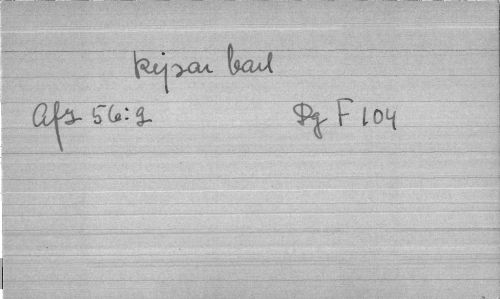 kejsar karl
Afz 56:2
Dg F 104